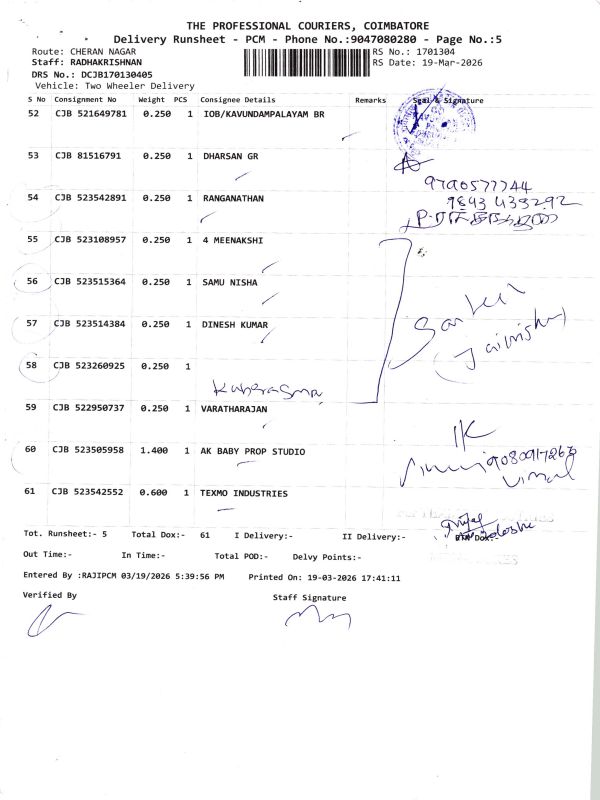 THE PROFESSIONAL COURIERS, COIMBATORE
Delivery Runsheet - PCM - Phone No.:9047080280 - Page No.:5
Route: CHERAN NAGAR RS No.: 1701304
Staff: RADHAKRISHNAN RS Date: 19-Mar-2026
DRS No.: DCJB170130405
Vehicle: Two Wheeler Delivery
S No Consignment No Weight PCS Consignee Details Remarks Seal & Signature
52 CJB 521649781 0.250 1 IOB/KAVUNDAMPALAYAM BR
53 CJB 81516791 0.250 1 DHARSAN GR
9790577744
54 CJB 523542891 0.250 1 RANGANATHAN
9843 433292
55 CJB 523108957 0.250 1 4 MEENAKSHI
56 CJB 523515364 0.250 1 SAMU NISHA
57 CJB 523514384 0.250 1 DINESH KUMAR
58 CJB 523260925 0.250 1
59 CJB 522950737 0.250 1 VARATHARAJAN
60 CJB 523505958 1.400 1 AK BABY PROP STUDIO
Vimal
61 CJB 523542552 0.600 1 TEXMO INDUSTRIES
Tot. Runsheet:- 5 Total Dox:- 61 I Delivery:- II Delivery:- RTN Dox:-
Out Time:- In Time:- Total POD:- Delvy Points:-
Entered By :RAJIPCM 03/19/2026 5:39:56 PM Printed On: 19-03-2026 17:41:11
Verified By Staff Signature